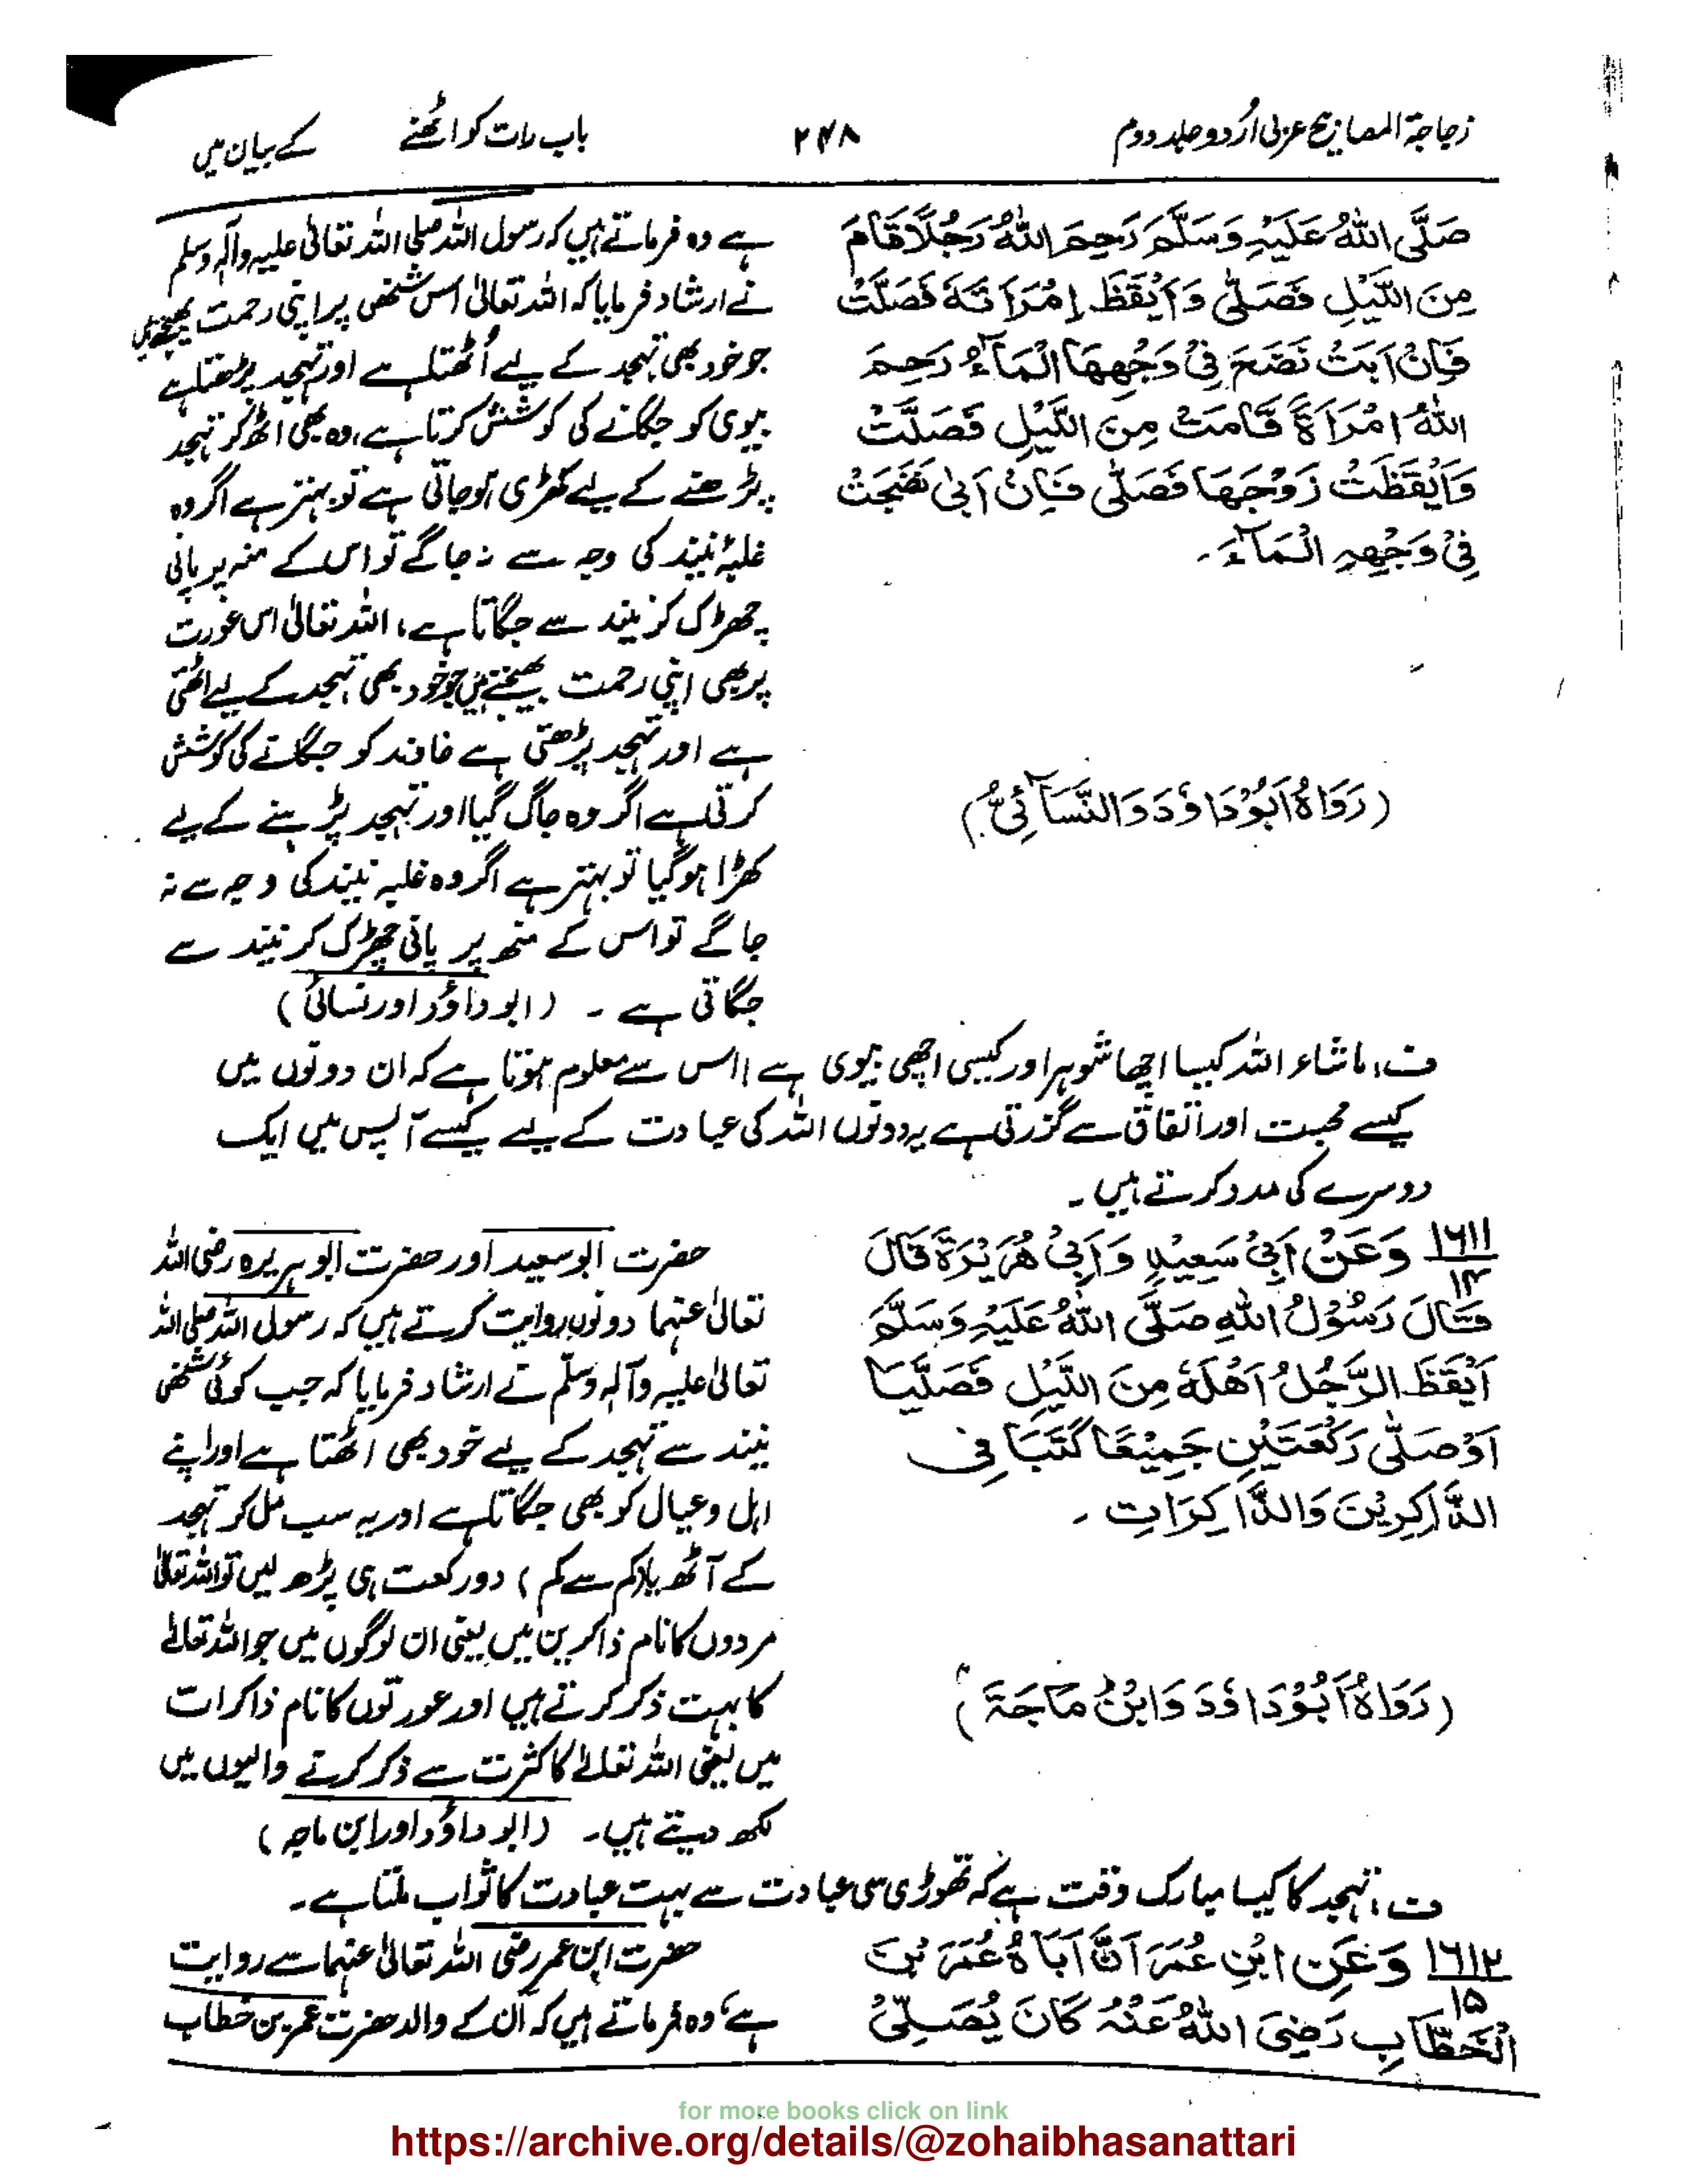 زجاجۃ المصابیح عربی اُردو جلد دوم
۲۴۸
باب رات کو اٹھنے
کے بیان میں
صَلَّی اللّٰہُ عَلَیْہِ وَسَلَّمَ رَحِمَ اللّٰہُ رَجُلًا قَامَ
مِنَ اللَّیْلِ فَصَلّٰی وَاَیْقَظَ اِمْرَاَتَہٗ فَصَلَّتْ
فَاِنْ اَبَتْ نَضَحَ فِیْ وَجْھِھَا الْمَآءُ رَحِمَ
اللّٰہُ امْرَاَۃً قَامَتْ مِنَ اللَّیْلِ فَصَلَّتْ
وَاَیْقَظَتْ زَوْجَھَا فَصَلّٰی فَاِنْ اَبٰی نَضَحَتْ
فِیْ وَجْھِہِ الْمَآءَ۔
(رَوَاہُ اَبُوْدَاؤدَ وَالنَّسَآئِیُّ)
ہے وہ فرماتے ہیں کہ رسول اللہ صلی اللہ تعالیٰ علیہ وآلہ وسلم
نے ارشاد فرمایا کہ اللہ تعالیٰ اس شخص پر اپنی رحمت بھیجتے ہیں
جو خود بھی تہجد کے لیے اُٹھتا ہے اور تہجد پڑھتا ہے
بیوی کو جگانے کی کوشش کرتا ہے، وہ بھی اٹھ کر تہجد
پڑھنے کے لیے کھڑی ہو جاتی ہے تو بہتر ہے اگر وہ
غلبۂ نیند کی وجہ سے نہ جاگے تو اس کے منہ پر پانی
چھڑک کر نیند سے جگاتا ہے، اللہ تعالیٰ اس عورت
پر بھی اپنی رحمت بھیجتے ہیں جو خود بھی تہجد کے لیے اٹھتی
ہے اور تہجد پڑھتی ہے خاوند کو جگانے کی کوشش
کرتی ہے اگر وہ جاگ گیا اور تہجد پڑہنے کے لیے
کھڑا ہو گیا تو بہتر ہے اگر وہ غلبہ نیند کی وجہ سے نہ
جاگے تو اس کے منھ پر پانی چھڑک کر نیند سے
جگاتی ہے۔ (ابوداؤد اور نسائی)
ف، ماشاء اللہ کیسا اچھا شوہر اور کیسی اچھی بیوی ہے! اس سے معلوم ہوتا ہے کہ ان دونوں میں
کیسے محبت اور اتفاق سے گزرتی ہے یہ دونوں اللہ کی عبادت کے لیے کیسے آپس میں ایک
دوسرے کی مدد کرتے ہیں۔
۱۶۱۱
۱۴
وَعَنْ اَبِیْ سَعِیْدٍ وَاَبِیْ ھُرَیْرَۃَ قَالَ
قَالَ رَسُوْلُ اللّٰہِ صَلَّی اللّٰہُ عَلَیْہِ وَسَلَّمَ
اَیْقَظَ الرَّجُلُ اَھْلَہٗ مِنَ اللَّیْلِ فَصَلَّیَا
اَوْصَلّٰی رَکْعَتَیْنِ جَمِیْعًا کُتِبَا فِی
الذَّاکِرِیْنَ وَالذَّاکِرَاتِ۔
(رَوَاہُ اَبُوْدَاؤدَ وَابْنُ مَاجَۃَ)
حضرت ابو سعید اور حضرت ابو ہریرہ رضی اللہ
تعالیٰ عنہما دونوں روایت کرتے ہیں کہ رسول اللہ صلی اللہ
تعالیٰ علیہ وآلہ وسلم نے ارشاد فرمایا کہ جب کوئی شخص
نیند سے تہجد کے لیے خود بھی اٹھتا ہے اور اپنے
اہل و عیال کو بھی جگاتا ہے اور یہ سب مل کر تہجد
کے آٹھ یا (کم سے کم) دو رکعت ہی پڑھ لیں تو اللہ تعالیٰ
مردوں کا نام ذاکرین میں یعنی ان لوگوں میں جو اللہ تعالےٰ
کا بہت ذکر کرتے ہیں اور عورتوں کا نام ذاکرات
میں یعنی اللہ تعالےٰ کا کثرت سے ذکر کرنے والیوں میں
لکھ دیتے ہیں۔ (ابوداؤد اور ابن ماجہ)
ف، تہجد کا کیا مبارک وقت ہے کہ تھوڑی سی عبادت سے بہت عبادت کا ثواب ملتا ہے۔
۱۶۱۲
۱۵
وَعَنِ ابْنِ عُمَرَ اَنَّ اَبَاہُ عُمَرَ بْنَ
الْخَطَّابِ رَضِیَ اللّٰہُ عَنْہُ کَانَ یُصَلِّیْ
حضرت ابن عمر رضی اللہ تعالیٰ عنہما سے روایت
ہے، وہ فرماتے ہیں کہ اُن کے والد حضرت عمر بن خطاب
for more books click on link
https://archive.org/details/@zohaibhasanattari